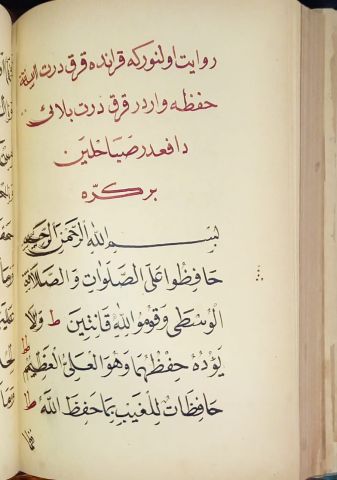 روايت اولنوركه قرانده قرق درت آيت
حفظه واردر قرق درت بلائى
دافعدر صباحلين
بر كرّه
بسم الله الرحمن الرحيم
حَافِظُوا عَلَى الصَّلَوَاتِ وَالصَّلَاةِ
الْوُسْطَى وَقُومُوا لِلَّهِ قَانِتِينَ ط وَلَا
يَؤُدُهُ حِفْظُهُمَا وَهُوَ الْعَلِىُّ الْعَظِيمُ ط
حَافِظَاتٌ لِلْغَيْبِ بِمَا حَفِظَ اللَّهُ ط